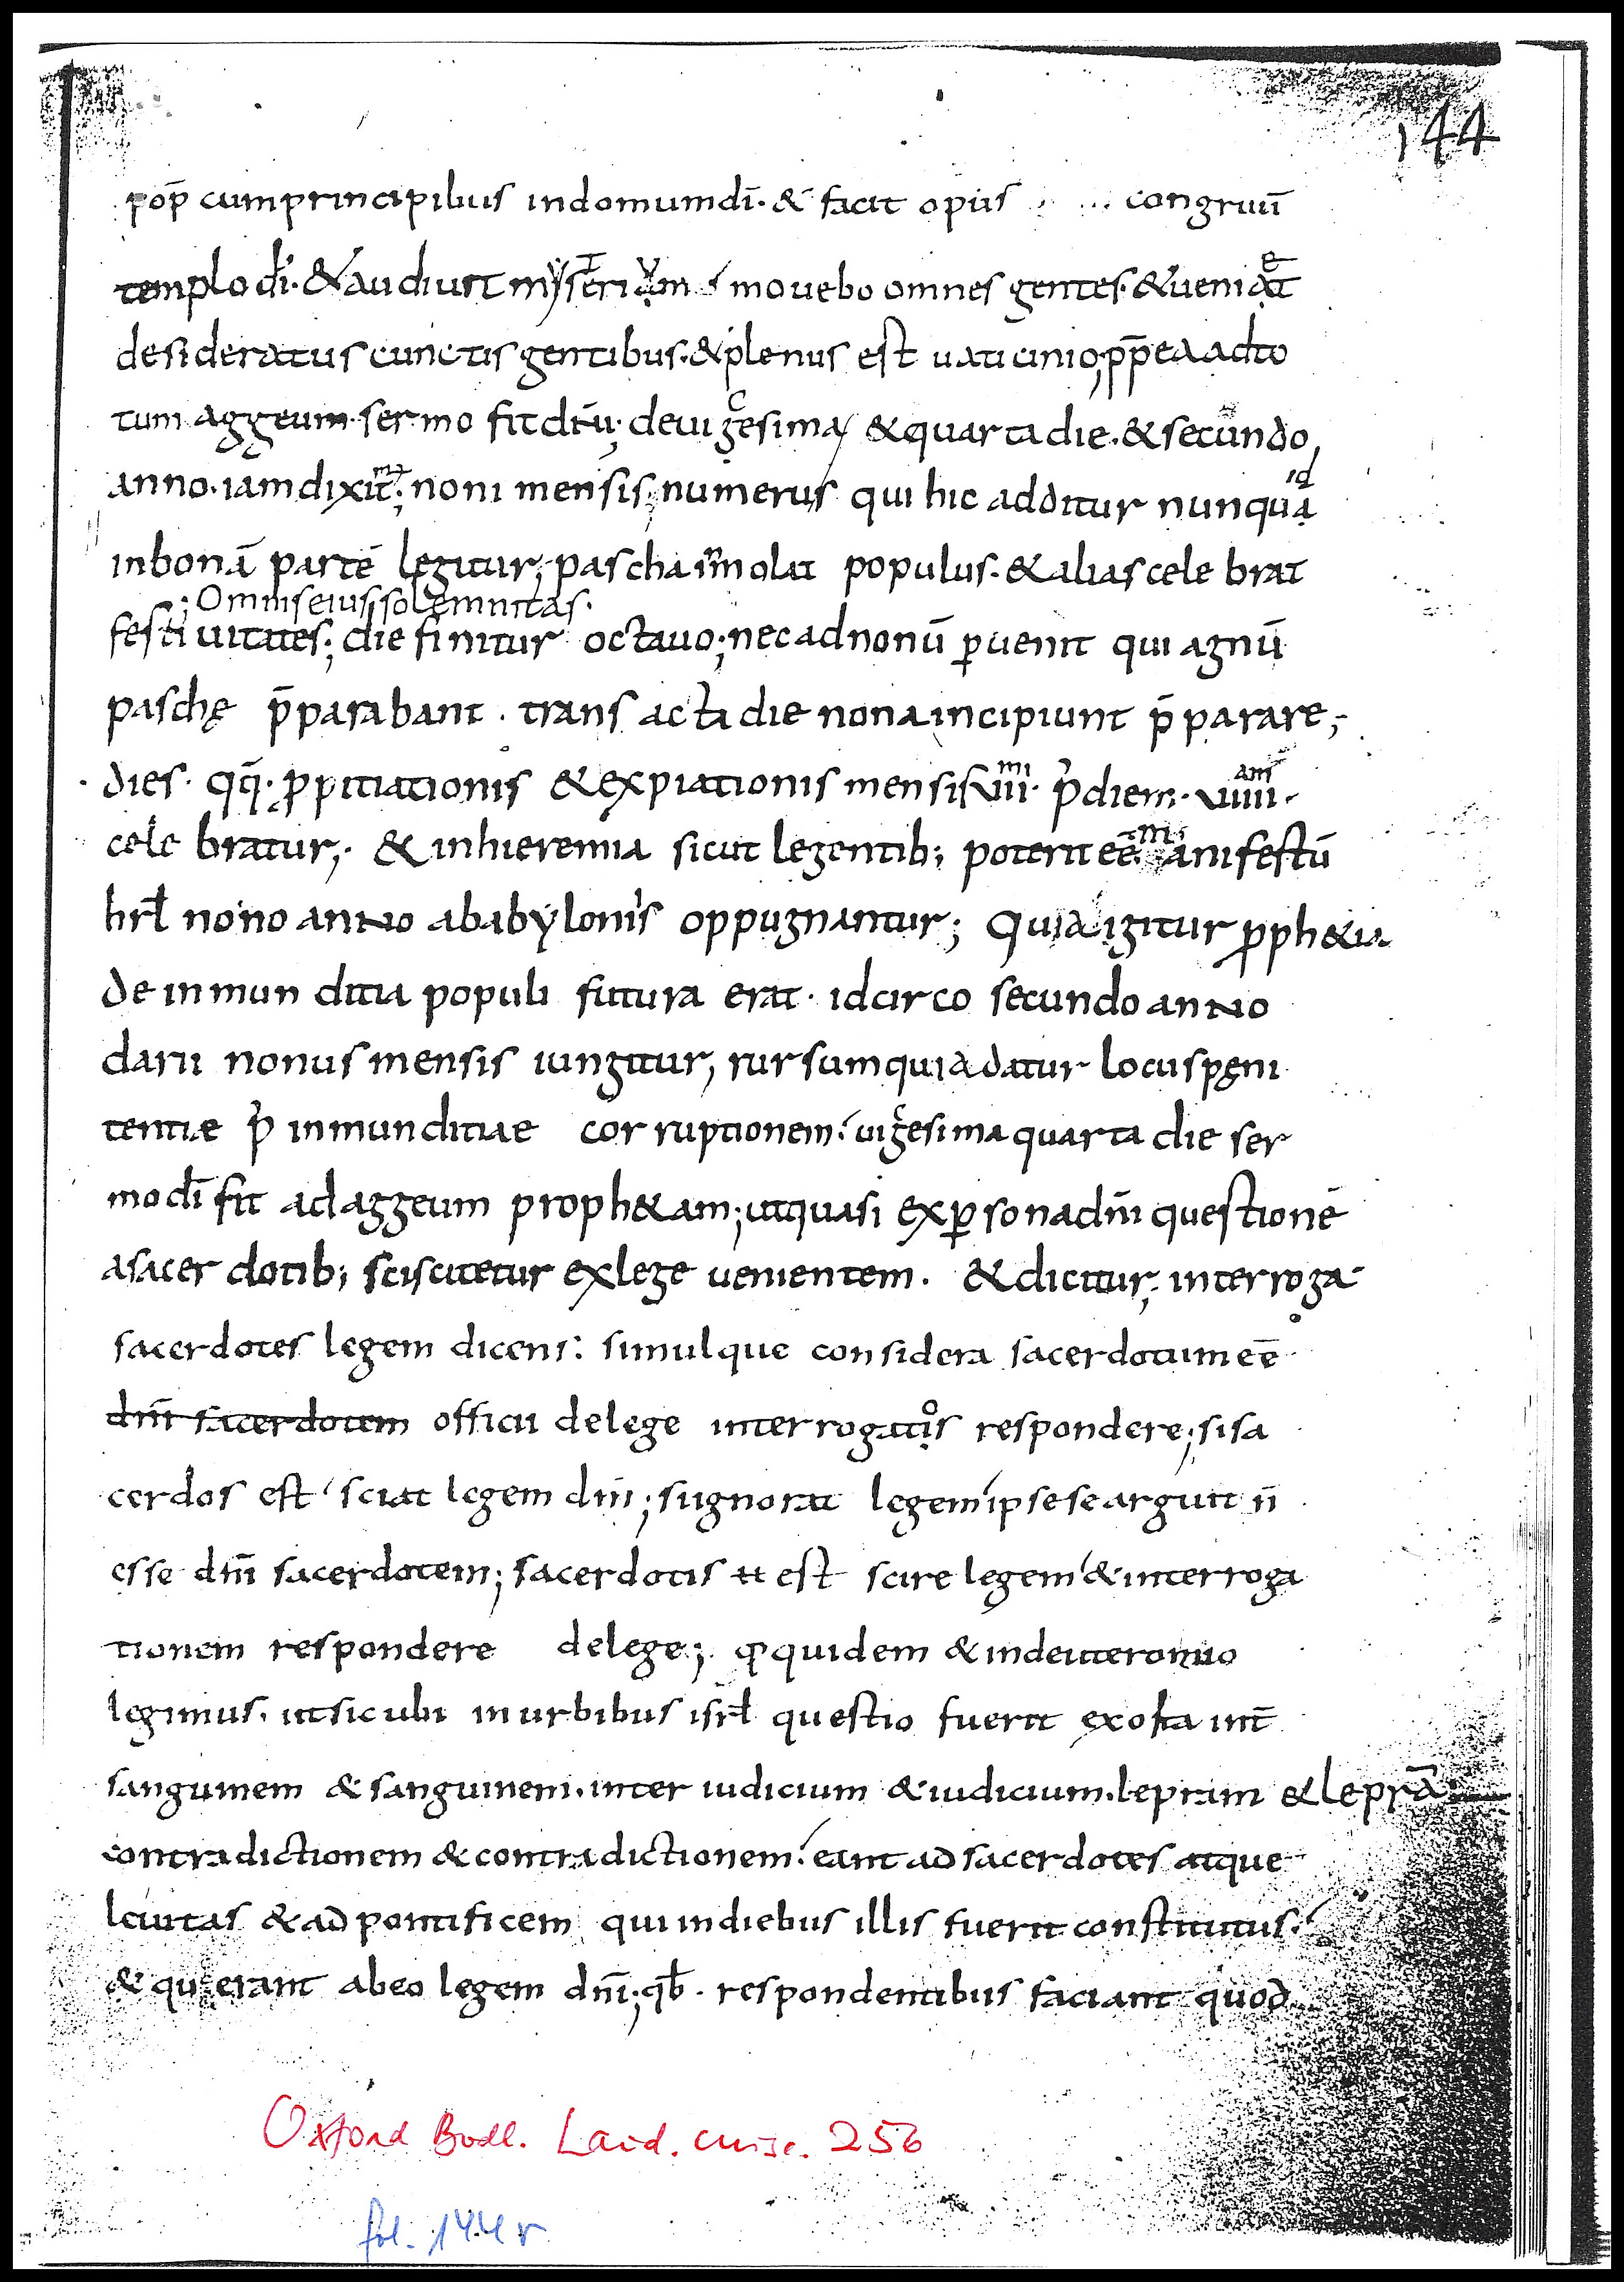 144
pop̄ cum principibus in domum dī· & facit opus congruū
templo dī· & audiuit mysterium movebo omnes gentes· & ueniet
desideratus cunctis gentibus· & plenus est uaticinio, pp̄ea ad to
tum aggeum· sermo fit dn̄i; de uigesima & quarta die· & secundo
anno· iam diximus; noni mensis numerus qui hic additur nunquā
in bonā partē legitur; pascha īmolat populus· & alias celebrat
; Omnis eius solemnitas·
festiuitates; die finitur octauo; nec ad nonū ꝑuenit qui agnū
paschę p̄parabant· transacta die nona incipiunt p̄parare;
dies· qq̄· ꝓpitiationis & expiationis mensis uiii· p̄ diem· uiiii·
celebratur;· & in hieremia sicut legentib; poterit eē· manifestū
hrl̄ nono anno a babylonis oppugnantur; Quia igitur ꝓph&ia
de inmunditia populi futura erat· idcirco secundo anno
darii nonus mensis iungitur; rursum quia datur locus pęni
tentiae p̄ inmunditiae corruptionem· uigesima quarta die ser
mo dī fit ad aggeum proph&am; ut quasi ex ꝑsona dn̄i questionē
a sacerdotib; sciscitetur ex lege uenientem· & dicitur; interroga
sacerdotes legem dicens: simulque considera sacerdotum eē
dn̄i sacerdotem officii de lege interrogatos respondere; si sa
cerdos est sciat legem dn̄i; si ignorat legem ipse se arguit n̄
esse dn̄i sacerdotem; sacerdotis ē est scire legem & interroga
tionem respondere de lege; qđ quidem & in deuteronuo
legimus· ut sicubi in urbibus isrl̄ questio fuerit exorta int̄
sanguinem & sanguinem· inter iudicium & iudicium· lepram & leprā
contradictionem & contradictionem· eant ad sacerdotes atque
leuitas & ad pontificem qui in diebus illis fuerit constitutus·
& quaerant ab eo legem dn̄i; qb̄· respondentibus faciant quod
Oxford Bodl. Laud. misc. 256
fol. 144r